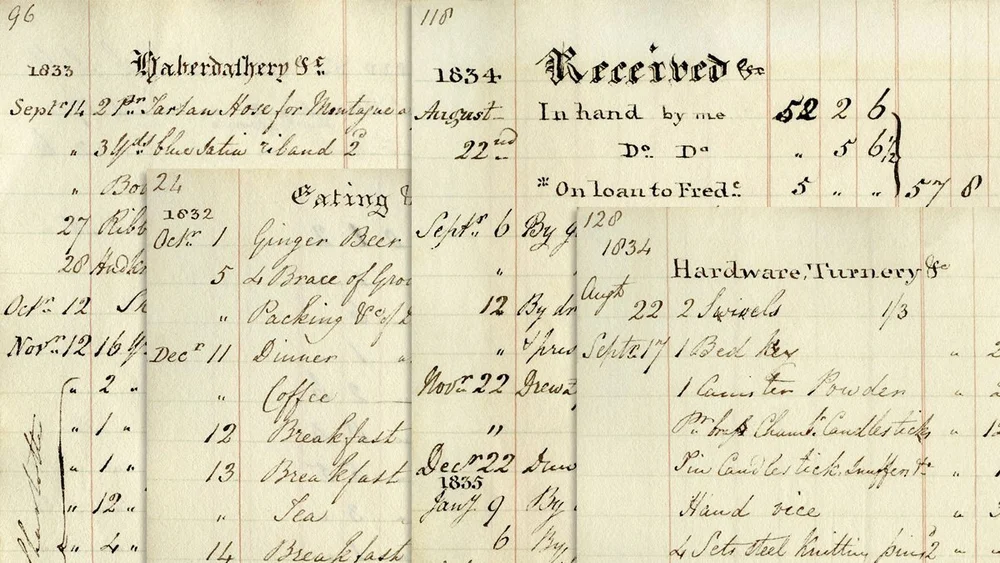 96
1833 Haberdashery &c
Septr 14 2 Pr Tartan Hose for Montague
" 3 Yds blue Satin riband 2d
"
27 Ribb
28 Hndk
Octr 12 Sh
Novr 12 16 Y
" 2 "
" 1 "
" 1 "
" 12 "
" 4 "
24
1832 Eating &
Octr 1 Ginger Beer
5 4 Brace of Gro
" Packing &c of
Decr 11 Dinner
" Coffee
12 Breakfast
13 Breakfast
" Tea
14 Breakfast
118
1834 Received &c
August In hand by me 52 2 6
22nd Do Do " 5 6½
* On loan to Fredc 5 " " 57 8
Septr 6 By g
"
12 By dr
"
Novr 22 Drew
"
Decr 22
1835
Jany 9 By
6 By
128
1834
Hardware, Turnery &c
Augt 22 2 Swivels 1/3
Septr 17 1 Bed Key " 2
1 Canister Powder "
Pr brass Chamr Candlesticks "
Tin Candlestick, Snuffers &c "
Hand vice " 3
4 Sets Steel Knitting pins 2 "